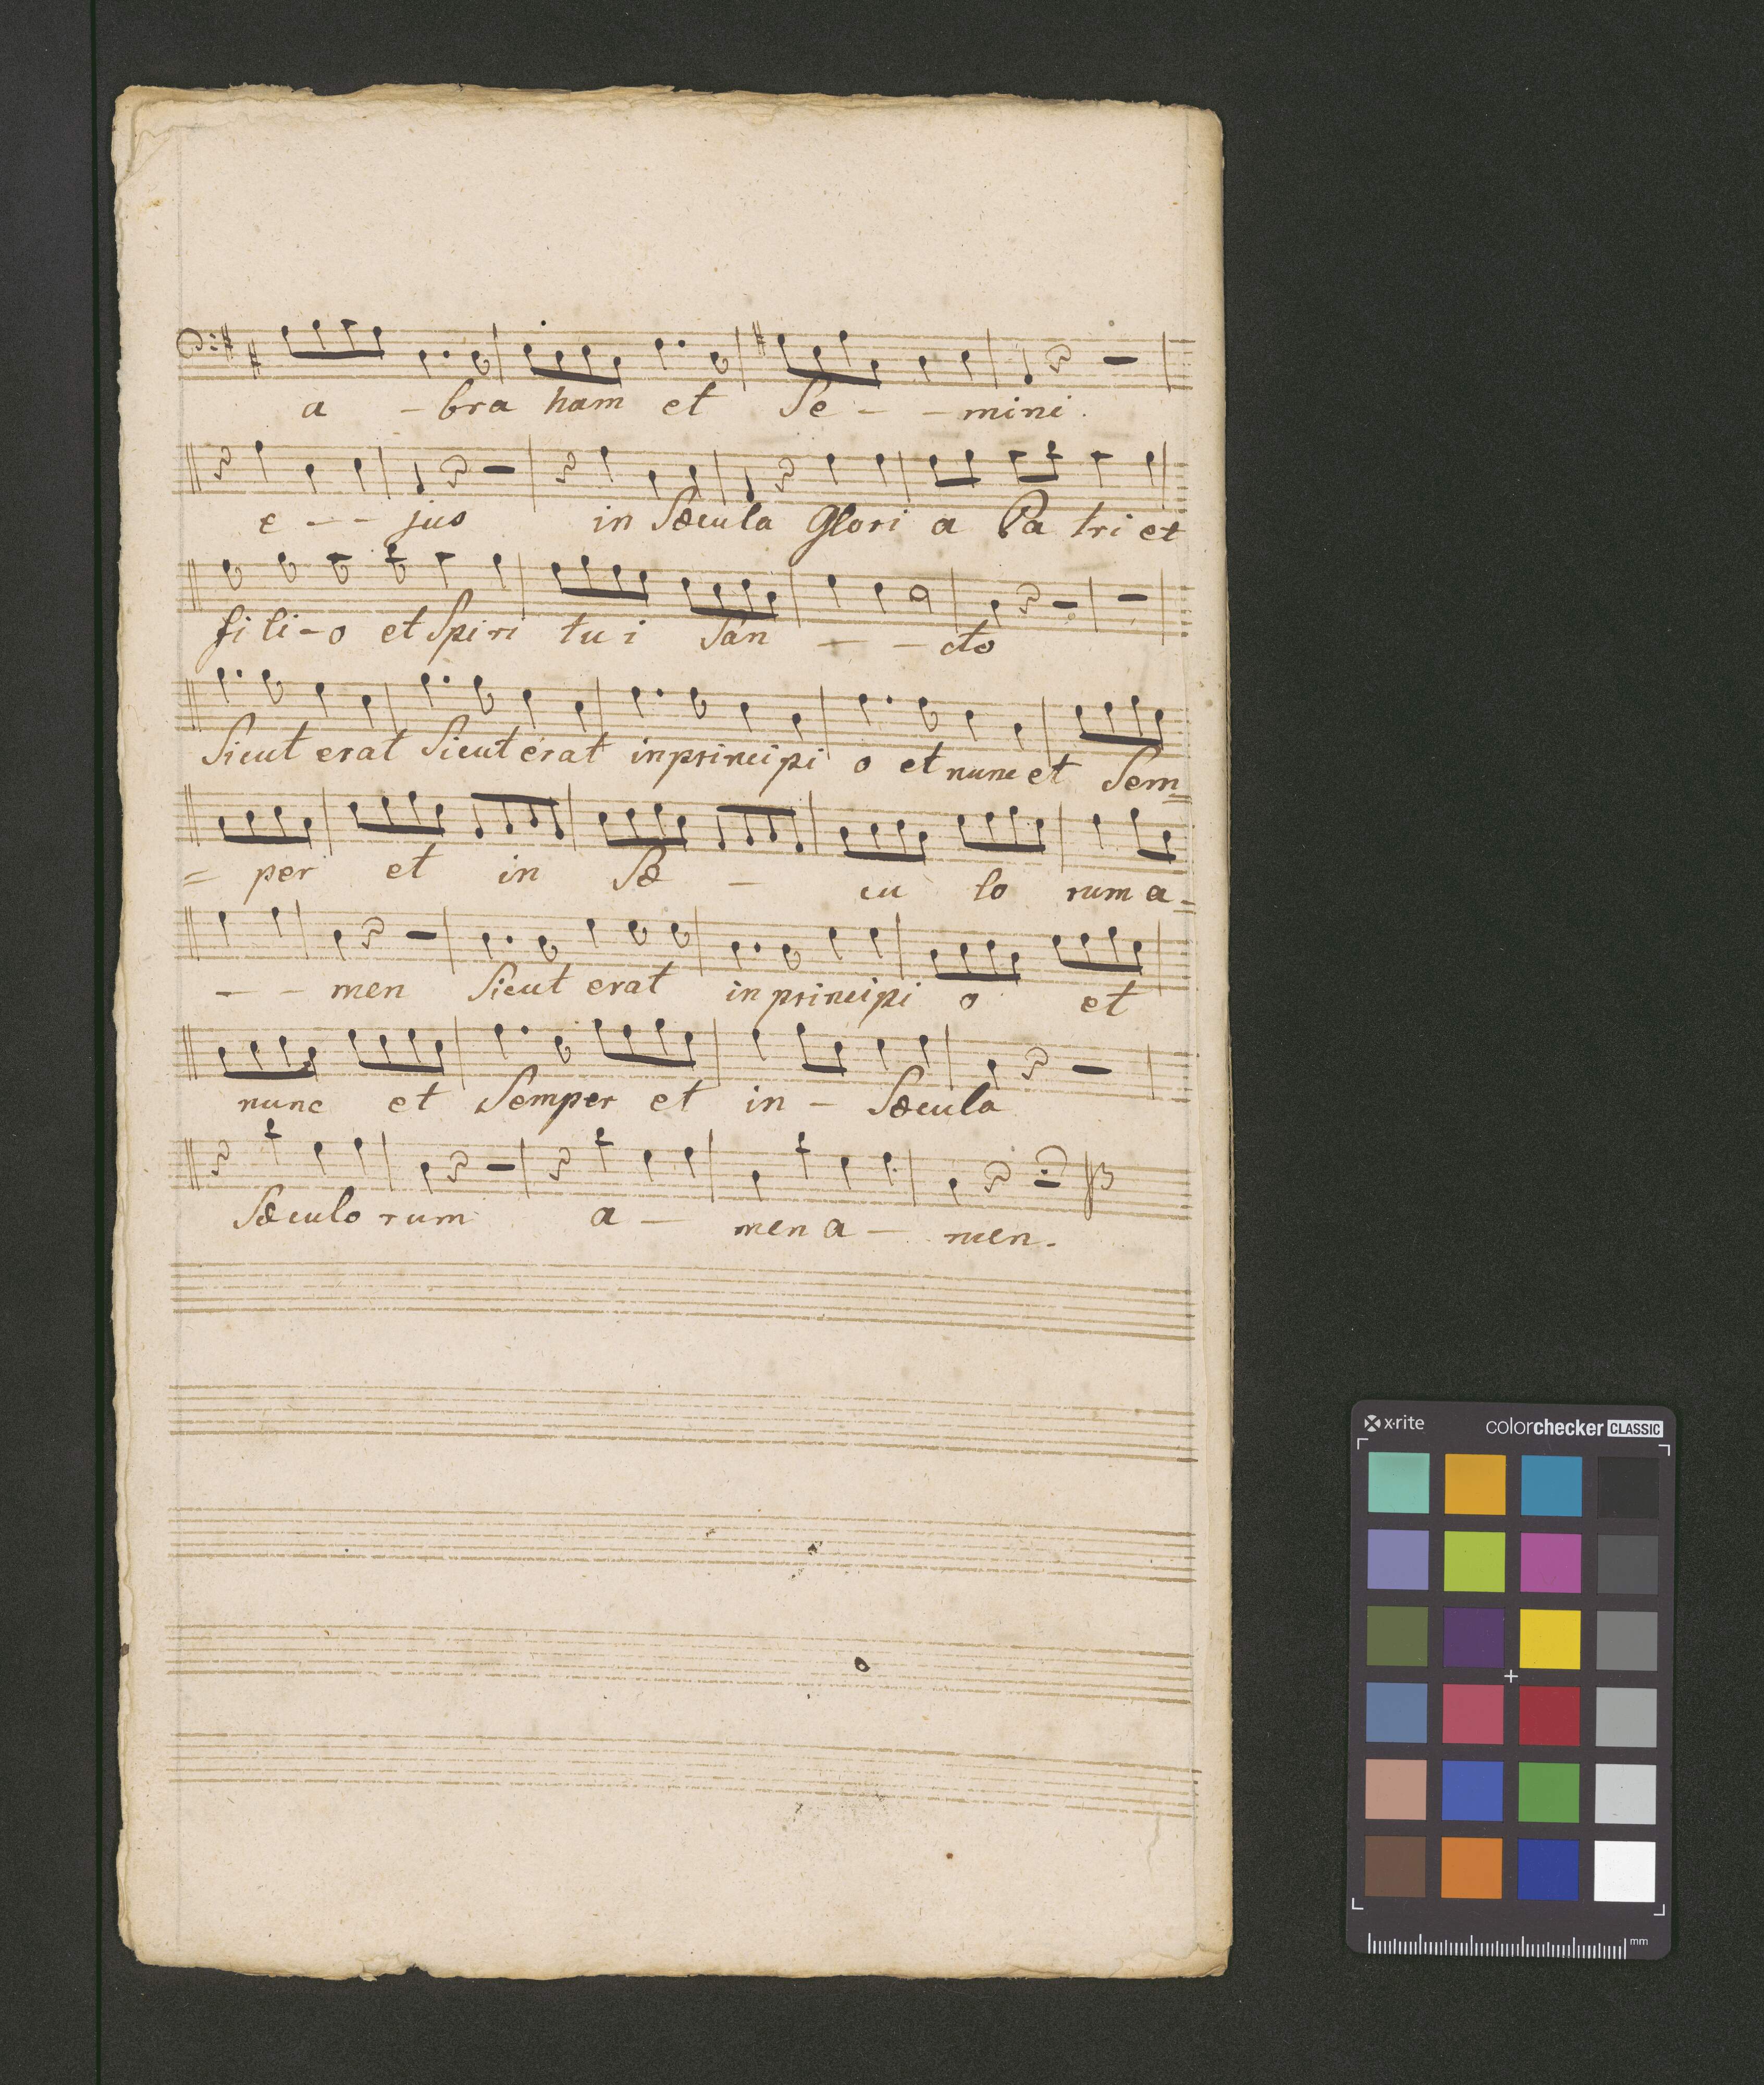 a - bra ham et Se - - mini.
e - - jus in Sæcula Glori a Pa tri et
fi li - o et Spi ri tu i San - - cto
Sicut erat Sicut erat in principi o et nunc et Sem=
= per et in Sæ - cu lo rum a=
- - men Sicut erat in principi o et
nunc et Semper et in - Sæcula
Sæculo rum a - men a - men.
x·rite colorchecker CLASSIC
mm